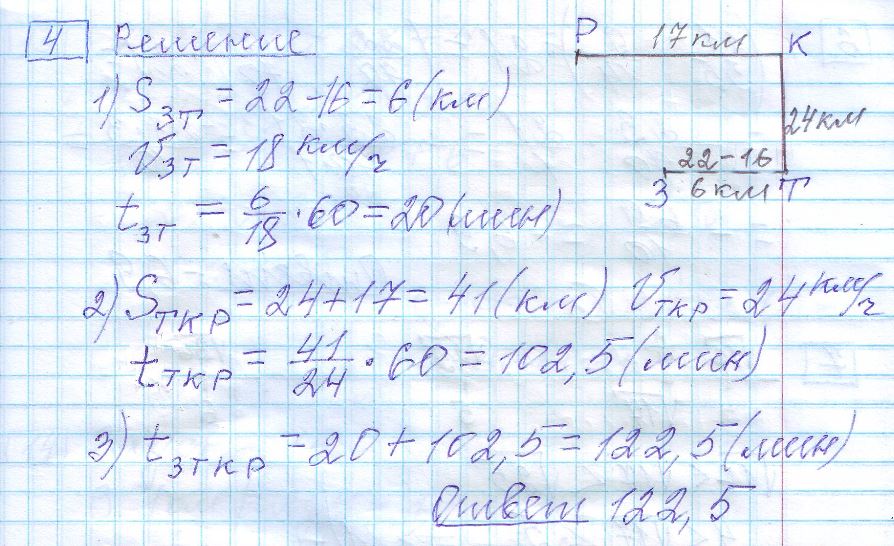 4 Решение
P 17км К
1) S зт = 22-16 = 6 (км)
24км
V зт = 18 км/ч
22-16
З 6км Т
t зт = 6/18 · 60 = 20 (мин)
2) S ткр = 24+17 = 41 (км) V ткр = 24 км/ч
t ткр = 41/24 · 60 = 102,5 (мин)
3) t зткр = 20 + 102,5 = 122,5 (мин)
Ответ 122,5